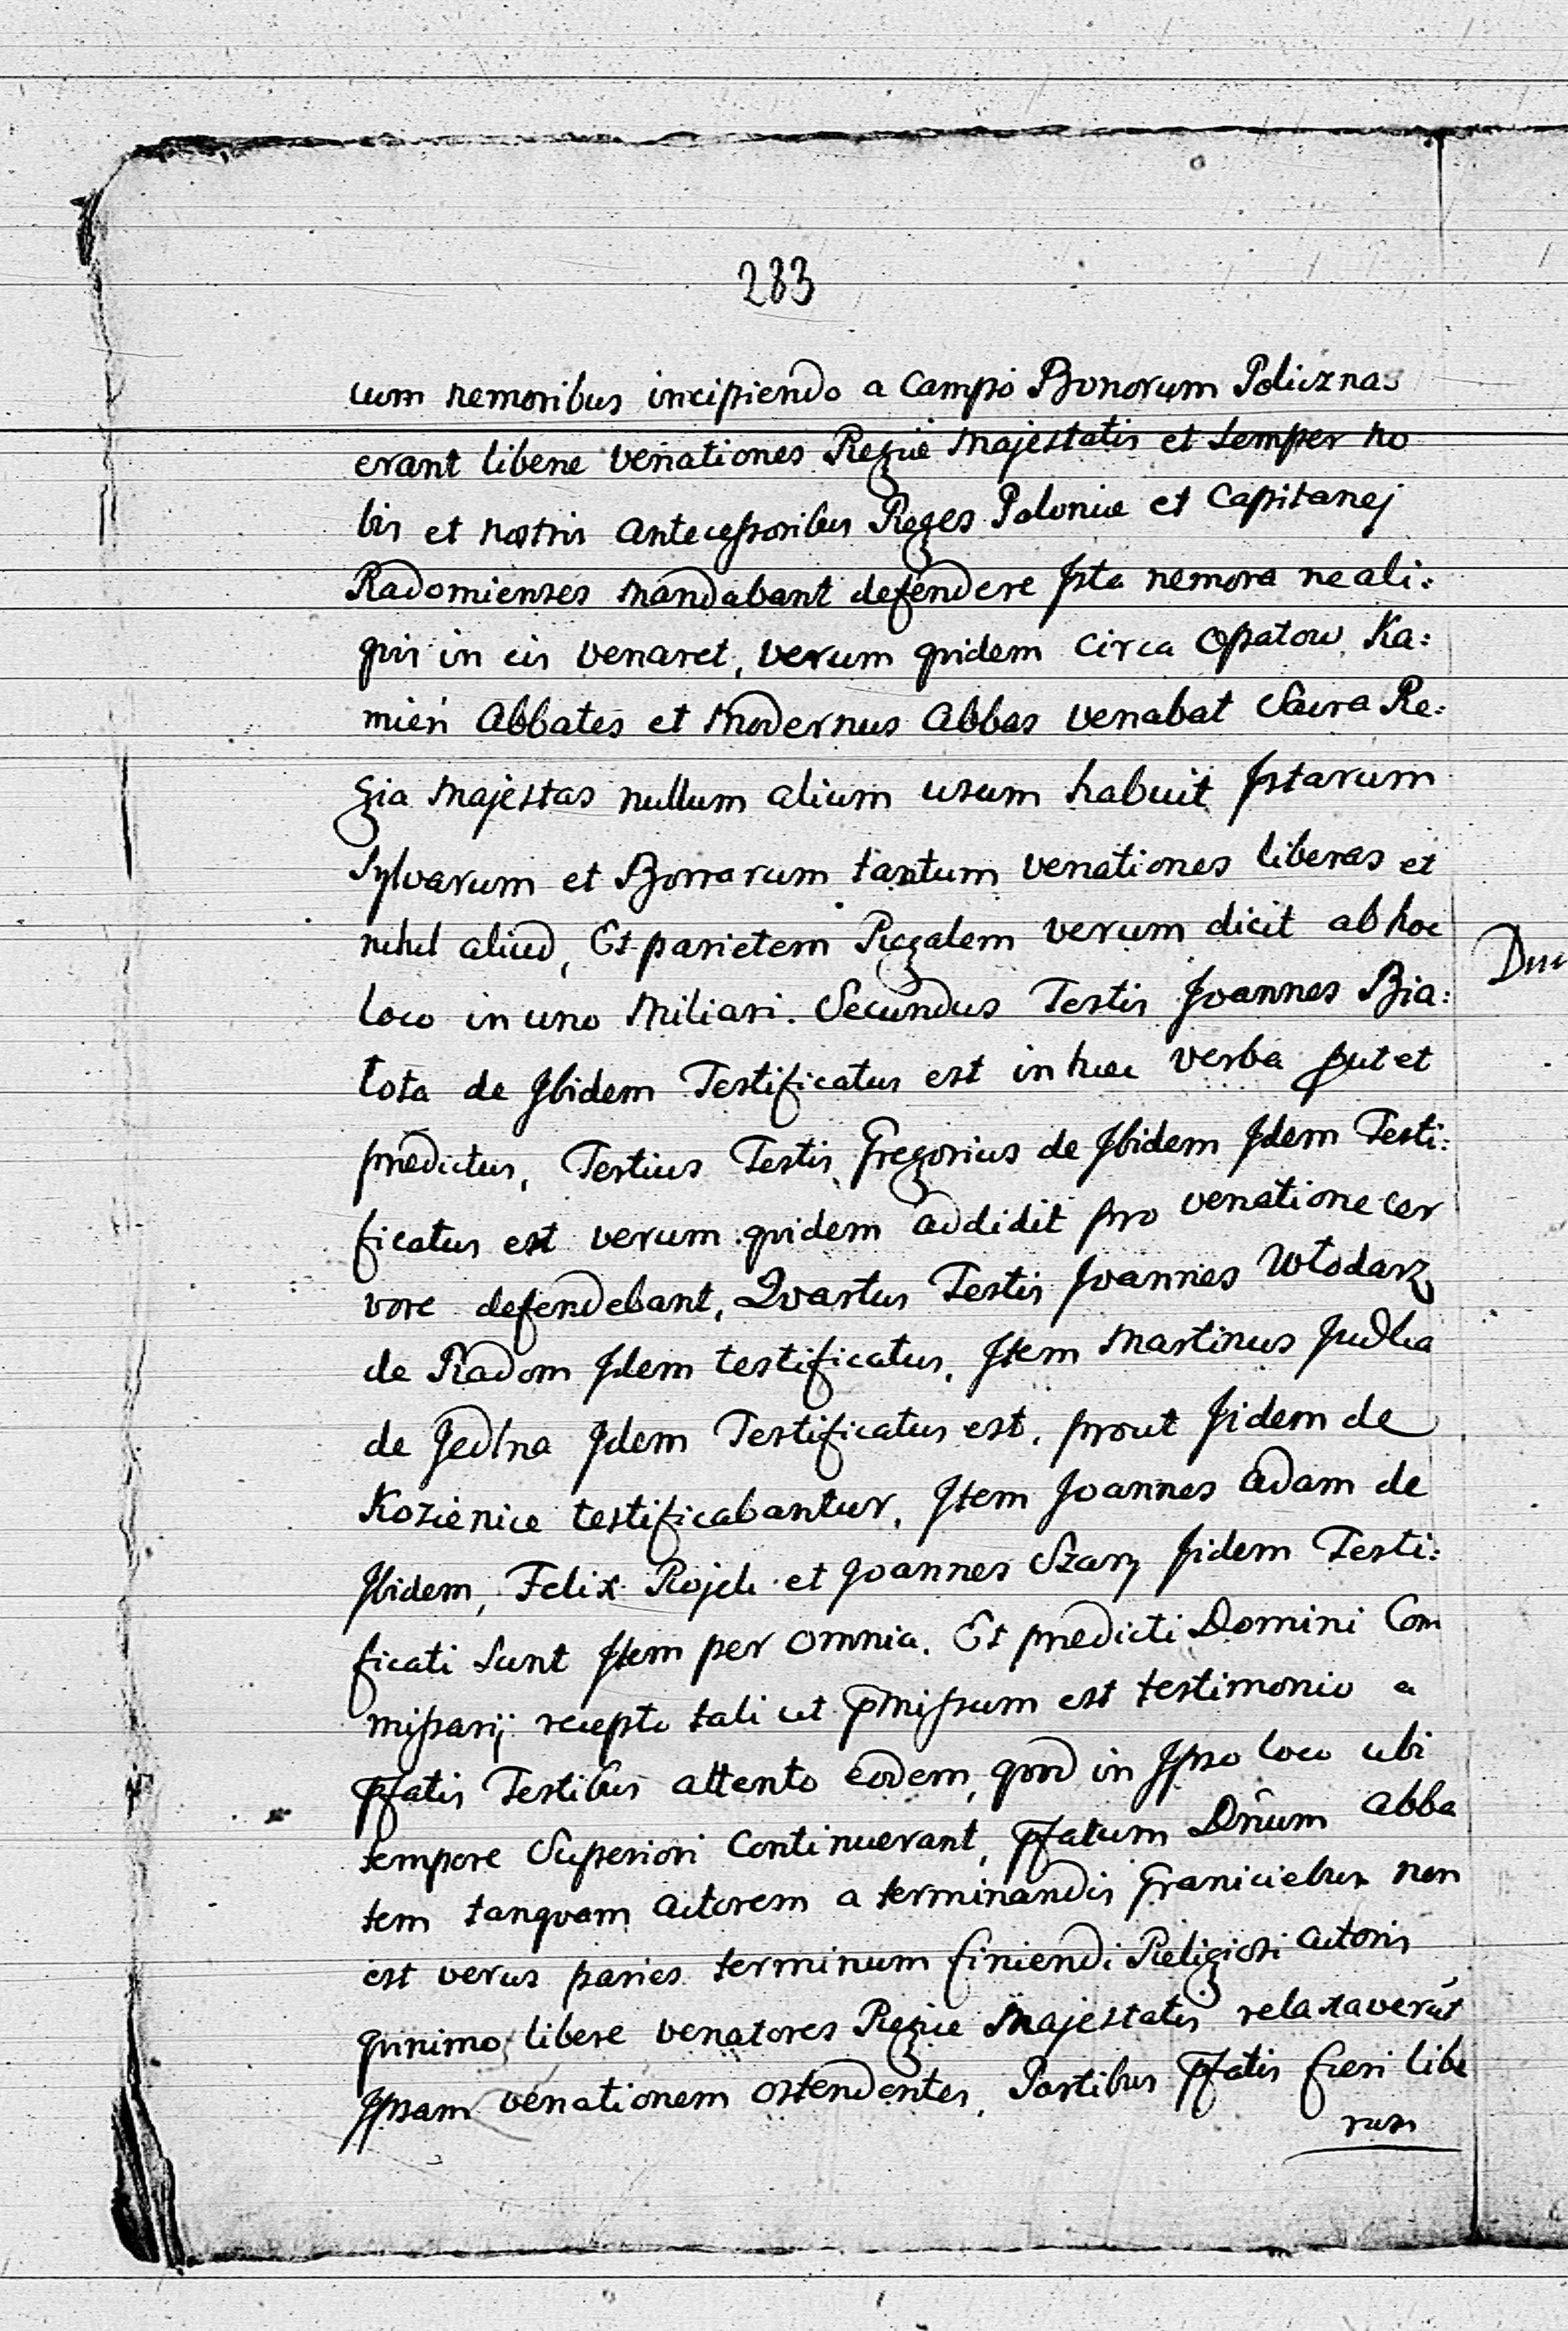 283
cum nemoribus incipiendo a Campo Bonorum Policzna
erant libere venationes Regie Majestatis et semper no
bis et nostris Antecessoribus Reges Polonie et Capitanej
Radomienses mandabant defendere Ista nemora ne ali:
quis in eis venaret, verum quidem circa Opatow Ka:
mień Abbates et Modernus Abbas venabat Sacra Re:
gia Majestas nullum alium usum habuit Istarum
Sylvarum et Borrarum tantum venationes liberas et
nihil aliud, Et parietem Regalem verum dicit ab hoc
loco in uno Miliari. Secundus Testis Joannes Bia:
łota de Ibidem Testificatus est in hec verba put et
predictus, Tertius Testis Gregorius de Ibidem Idem Testi:
ficatus est verum quidem addidit pro venatione cer
vore defendebant, Qvartus Testis Joannes Włodarz
de Radom Idem testificatus, Item Martinus Judka
de Jedlna Idem Testificatus est, prout Iidem de
Kozienice testificabantur, Item Joannes Adam de
Ibidem, Felix Rojek et Joannes Szary Iidem Testi:
ficati sunt Item per omnia. Et predicti Domini Com
missarij recepto tali ut p̄missum est testimonio a
p̄fatis Testibus attento eodem, quod in Ipso loco ubi
tempore Superiori Continuerant, p̄fatum Dn̄um Abba
tem tanqvam Actorem a terminandis Graniciebus non
est verus paries terminum finiendi Religiosi Actoris
quinimo libere venatores Regie Majestatis relaxaverūt
Ipsam venationem ostendentes, Partibus p̄fatis fieri libe
rum